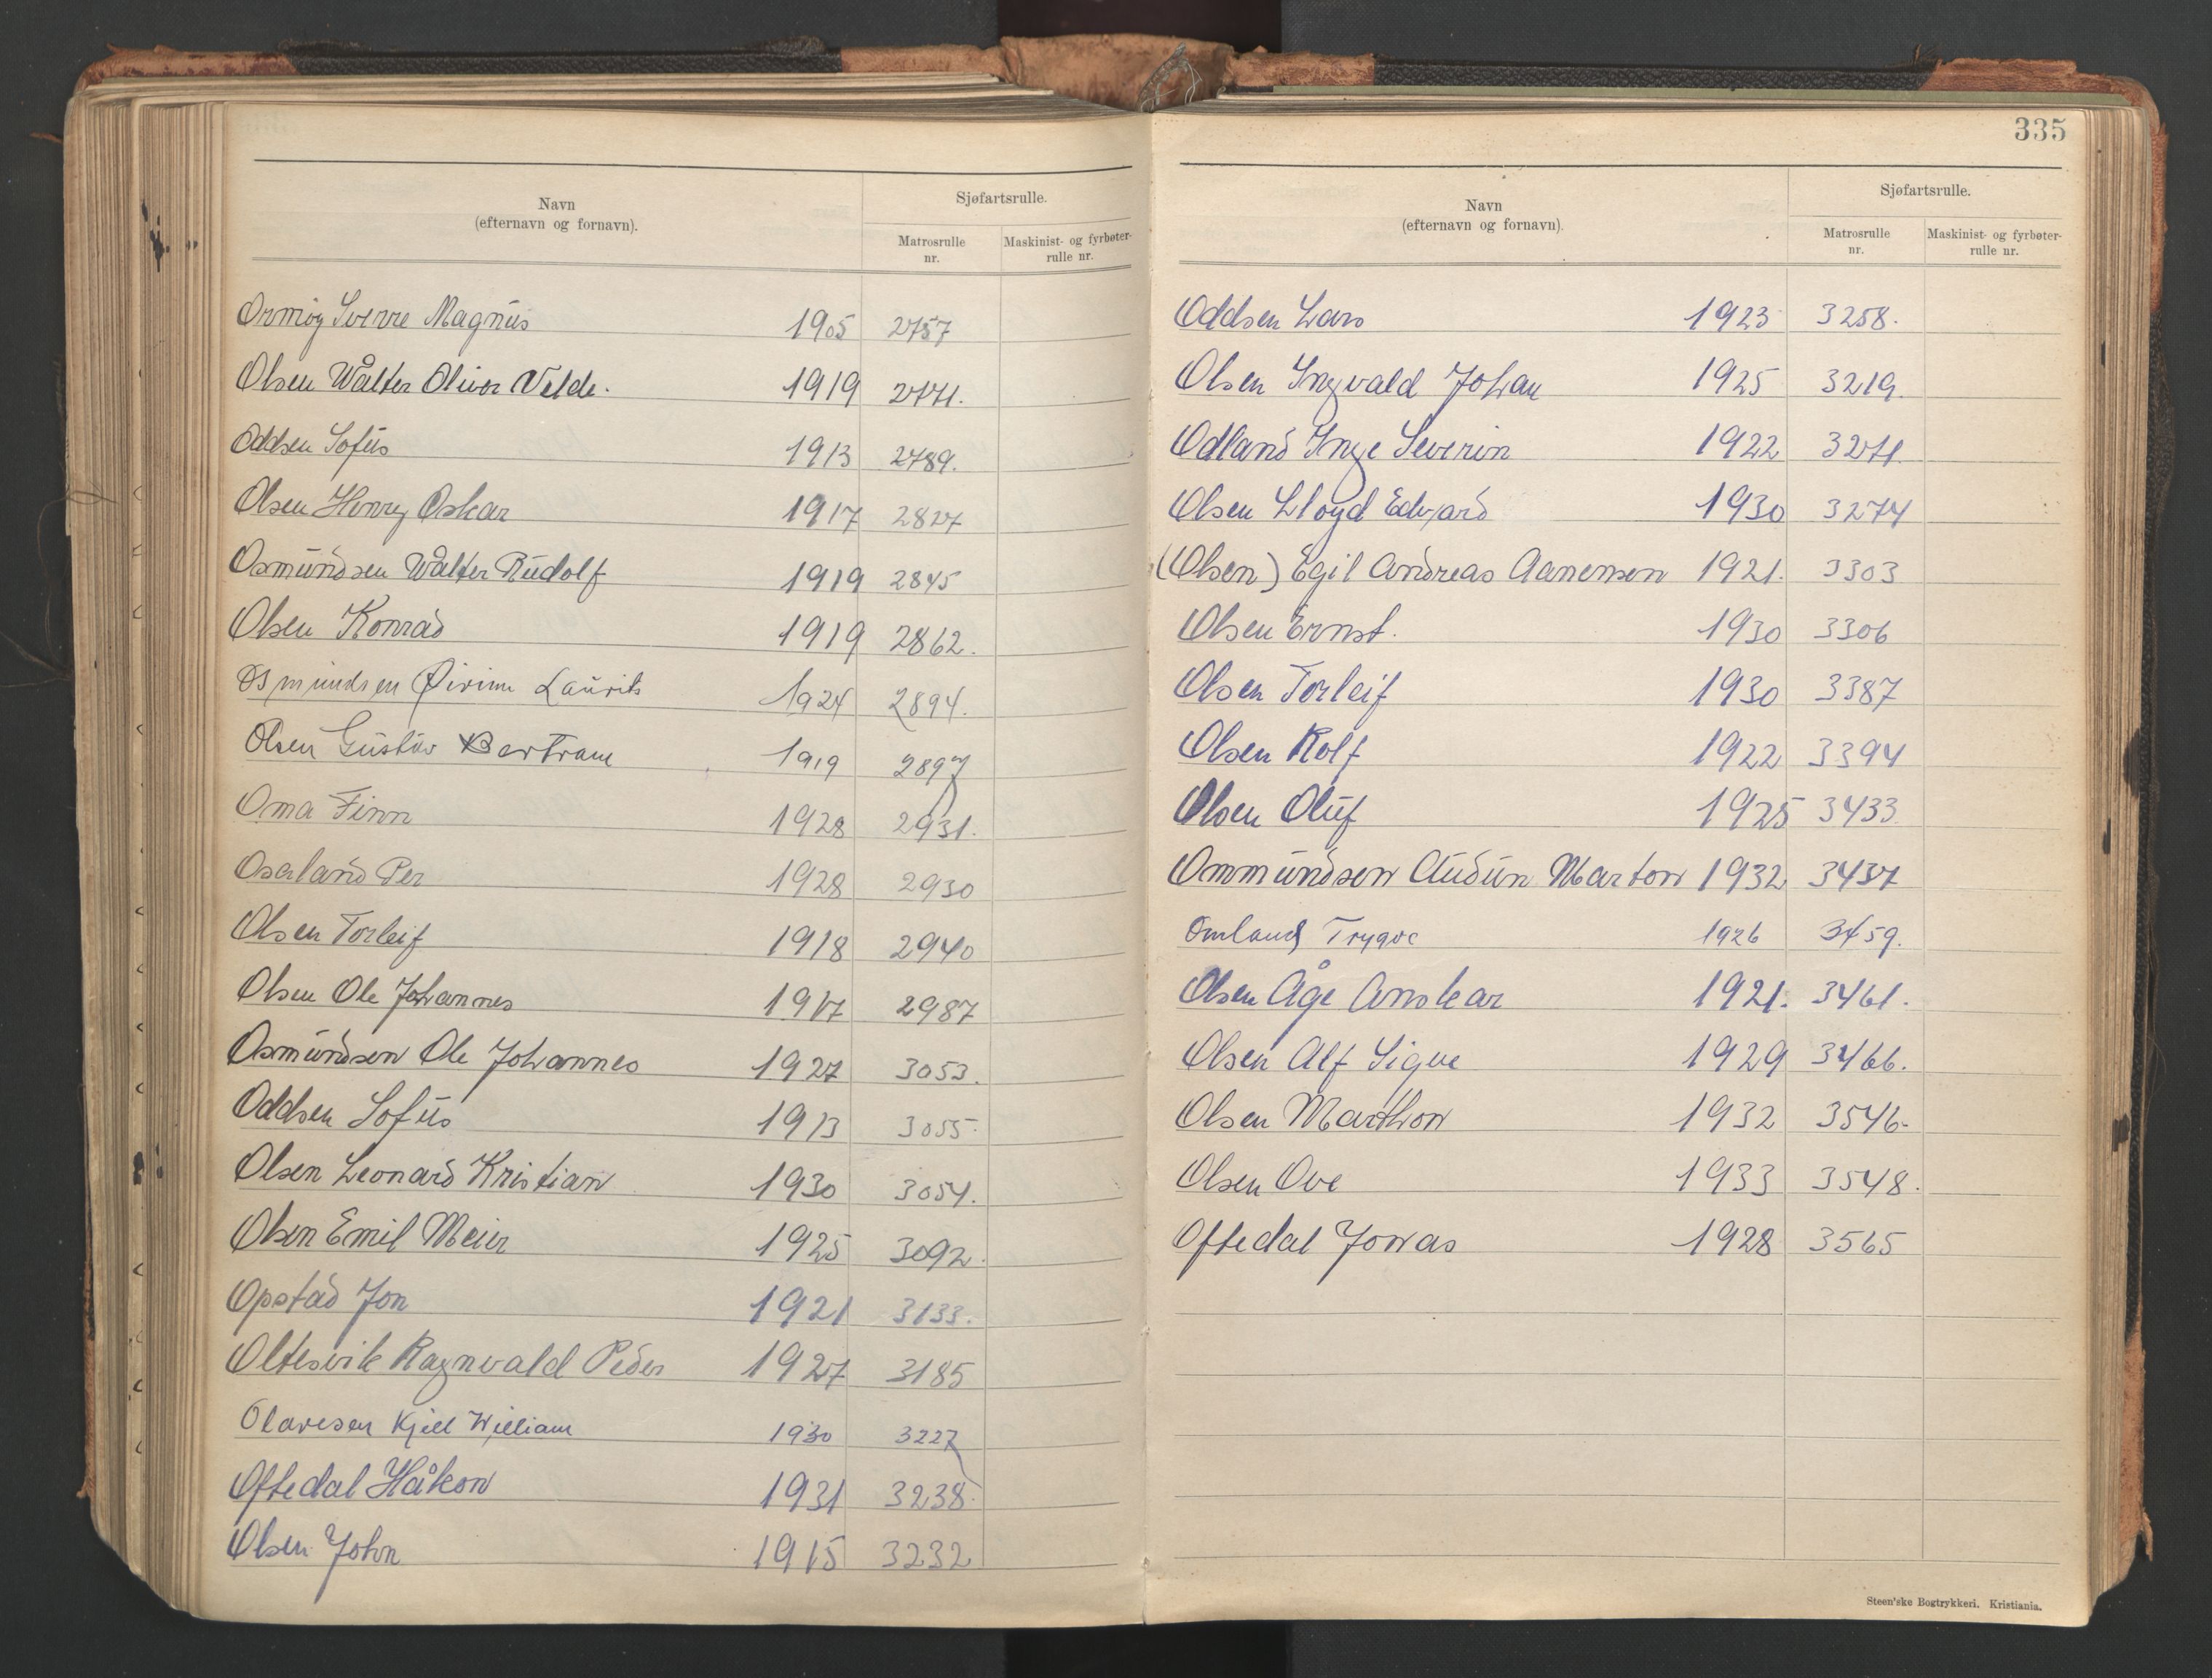 Navn
(efternavn og fornavn).
Sjøfartsrulle.
Matrosrulle
nr.
Maskinist- og fyrbøter-
rulle nr.
Ormøy Sverre Magnus 1905 2757
Olsen Walter Oliver Velde. 1919 2771.
Oddsen Sofus 1913 2789.
Olsen Henry Oskar 1917 2827
Osmundsen Walter Rudolf 1919 2845
Olsen Konrad 1919 2862.
Osmundsen Laurits 1924 2894.
Olsen Gustav Bertram 1919 2897
Oma Finn 1928 2931.
Osaland Per 1928 2930
Olsen Torleif 1918 2940
Olsen Ole Johannes 1917 2987
Osmundsen Ole Johannes 1927 3053.
Oddsen Sofus 1913 3055.
Olsen Leonard Kristian 1930 3054.
Olsen Emil Meier 1925 3092.
Opstad Jon 1921 3133.
Oltesvik Ragnvald Peder 1927 3185
Olavesen Kjell William 1930 3227
Oftedal Håkon 1931 3238.
Olsen John 1915 3232
335
Navn
(efternavn og fornavn).
Sjøfartsrulle.
Matrosrulle
nr.
Maskinist- og fyrbøter-
rulle nr.
Oddsen Lars 1923 3258.
Olsen Ingvald Johan 1925 3219.
Odland Inge Severin 1922 3271.
Olsen Lloyd Edvard 1930 3274
(Olsen) Egil Andreas Aanensen 1921. 3303
Olsen Ernst. 1930 3306
Olsen Torleif 1930 3387
Olsen Rolf 1922 3394
Olsen Oluf 1925 3433.
Ommundsen Audun Marton 1932 3437
Omland Trygve 1926 3459.
Olsen Åge Anskar 1921. 3461.
Olsen Alf Sigve 1929 3466.
Olsen Marthon 1932 3546.
Olsen Ove 1933 3548.
Oftedal Jonas 1928 3565
Steen'ske Bogtrykkeri. Kristiania.